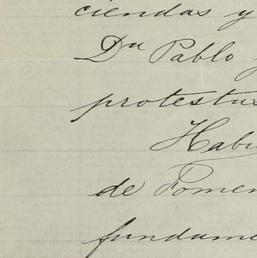 ciendas y
Dn Pablo
protestu
Habi
de Fomen
fundame